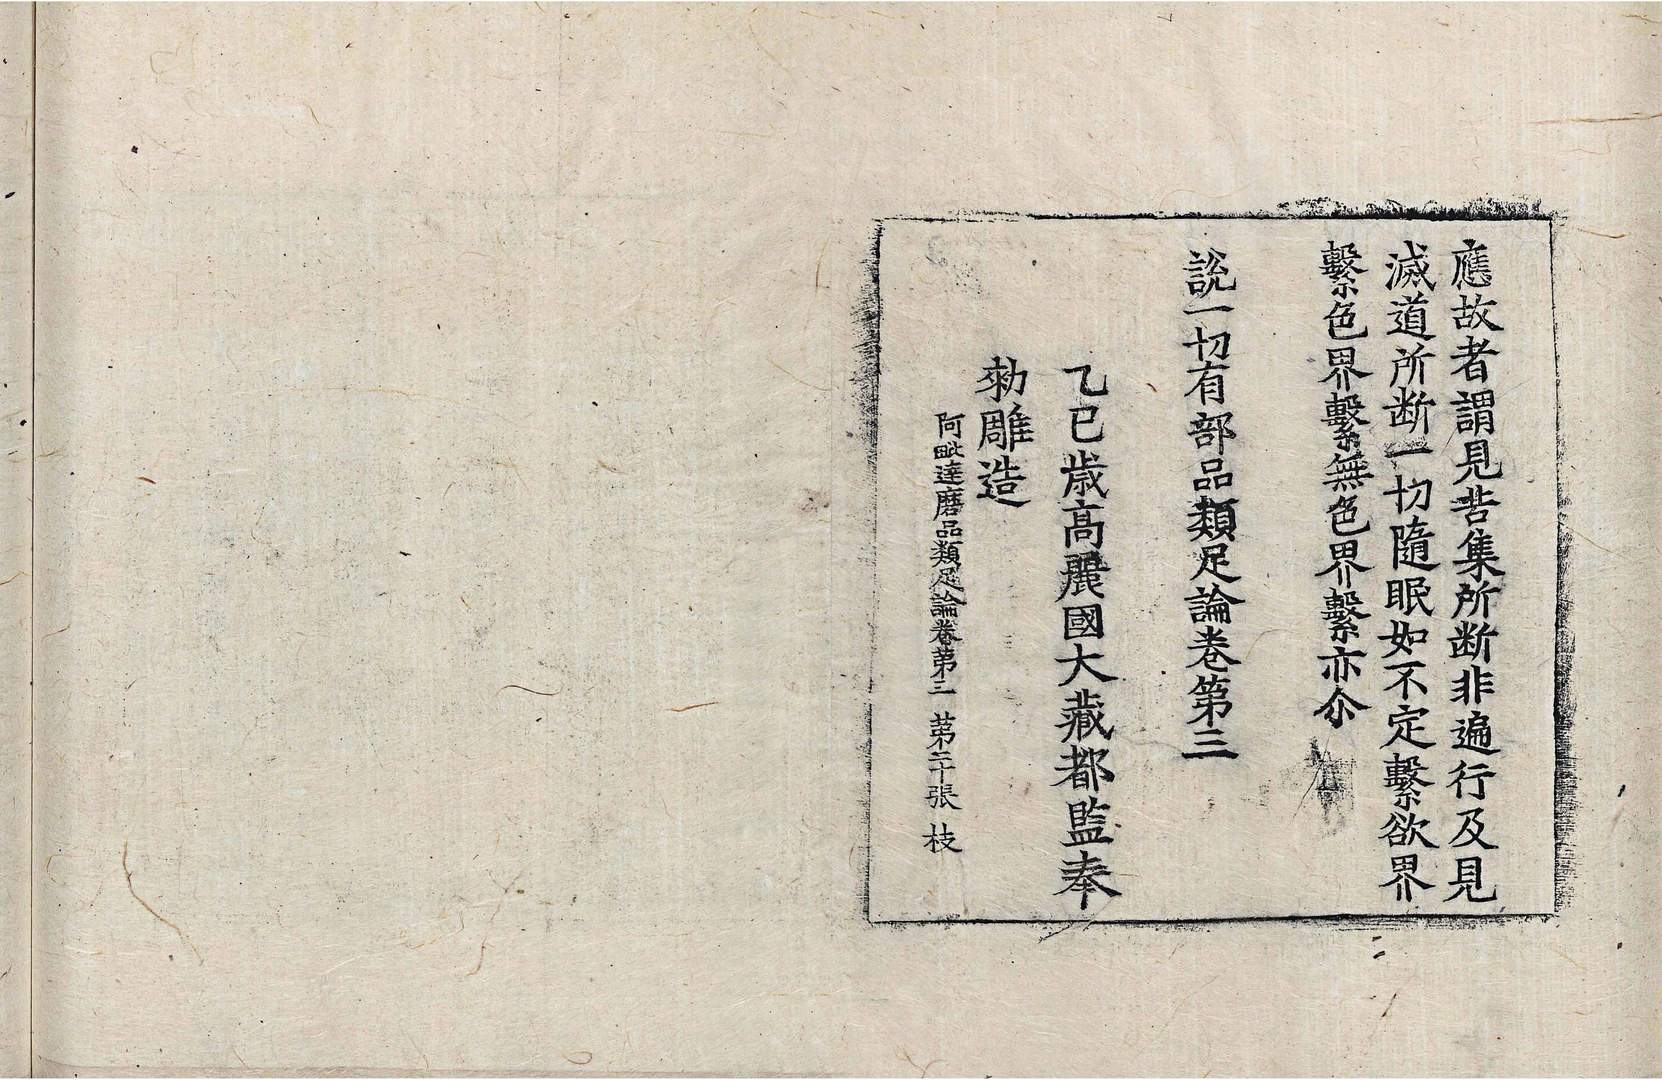 應故者謂見苦集所断非遍行及見
滅道所断一切隨眠如不定繫欲界
繫色界繫無色界繫亦尒
說一切有部品類足論卷第三
乙巳歲高麗國大藏都監奉
勑雕造
阿毗達磨品類足論卷苐三 苐二十張 枝